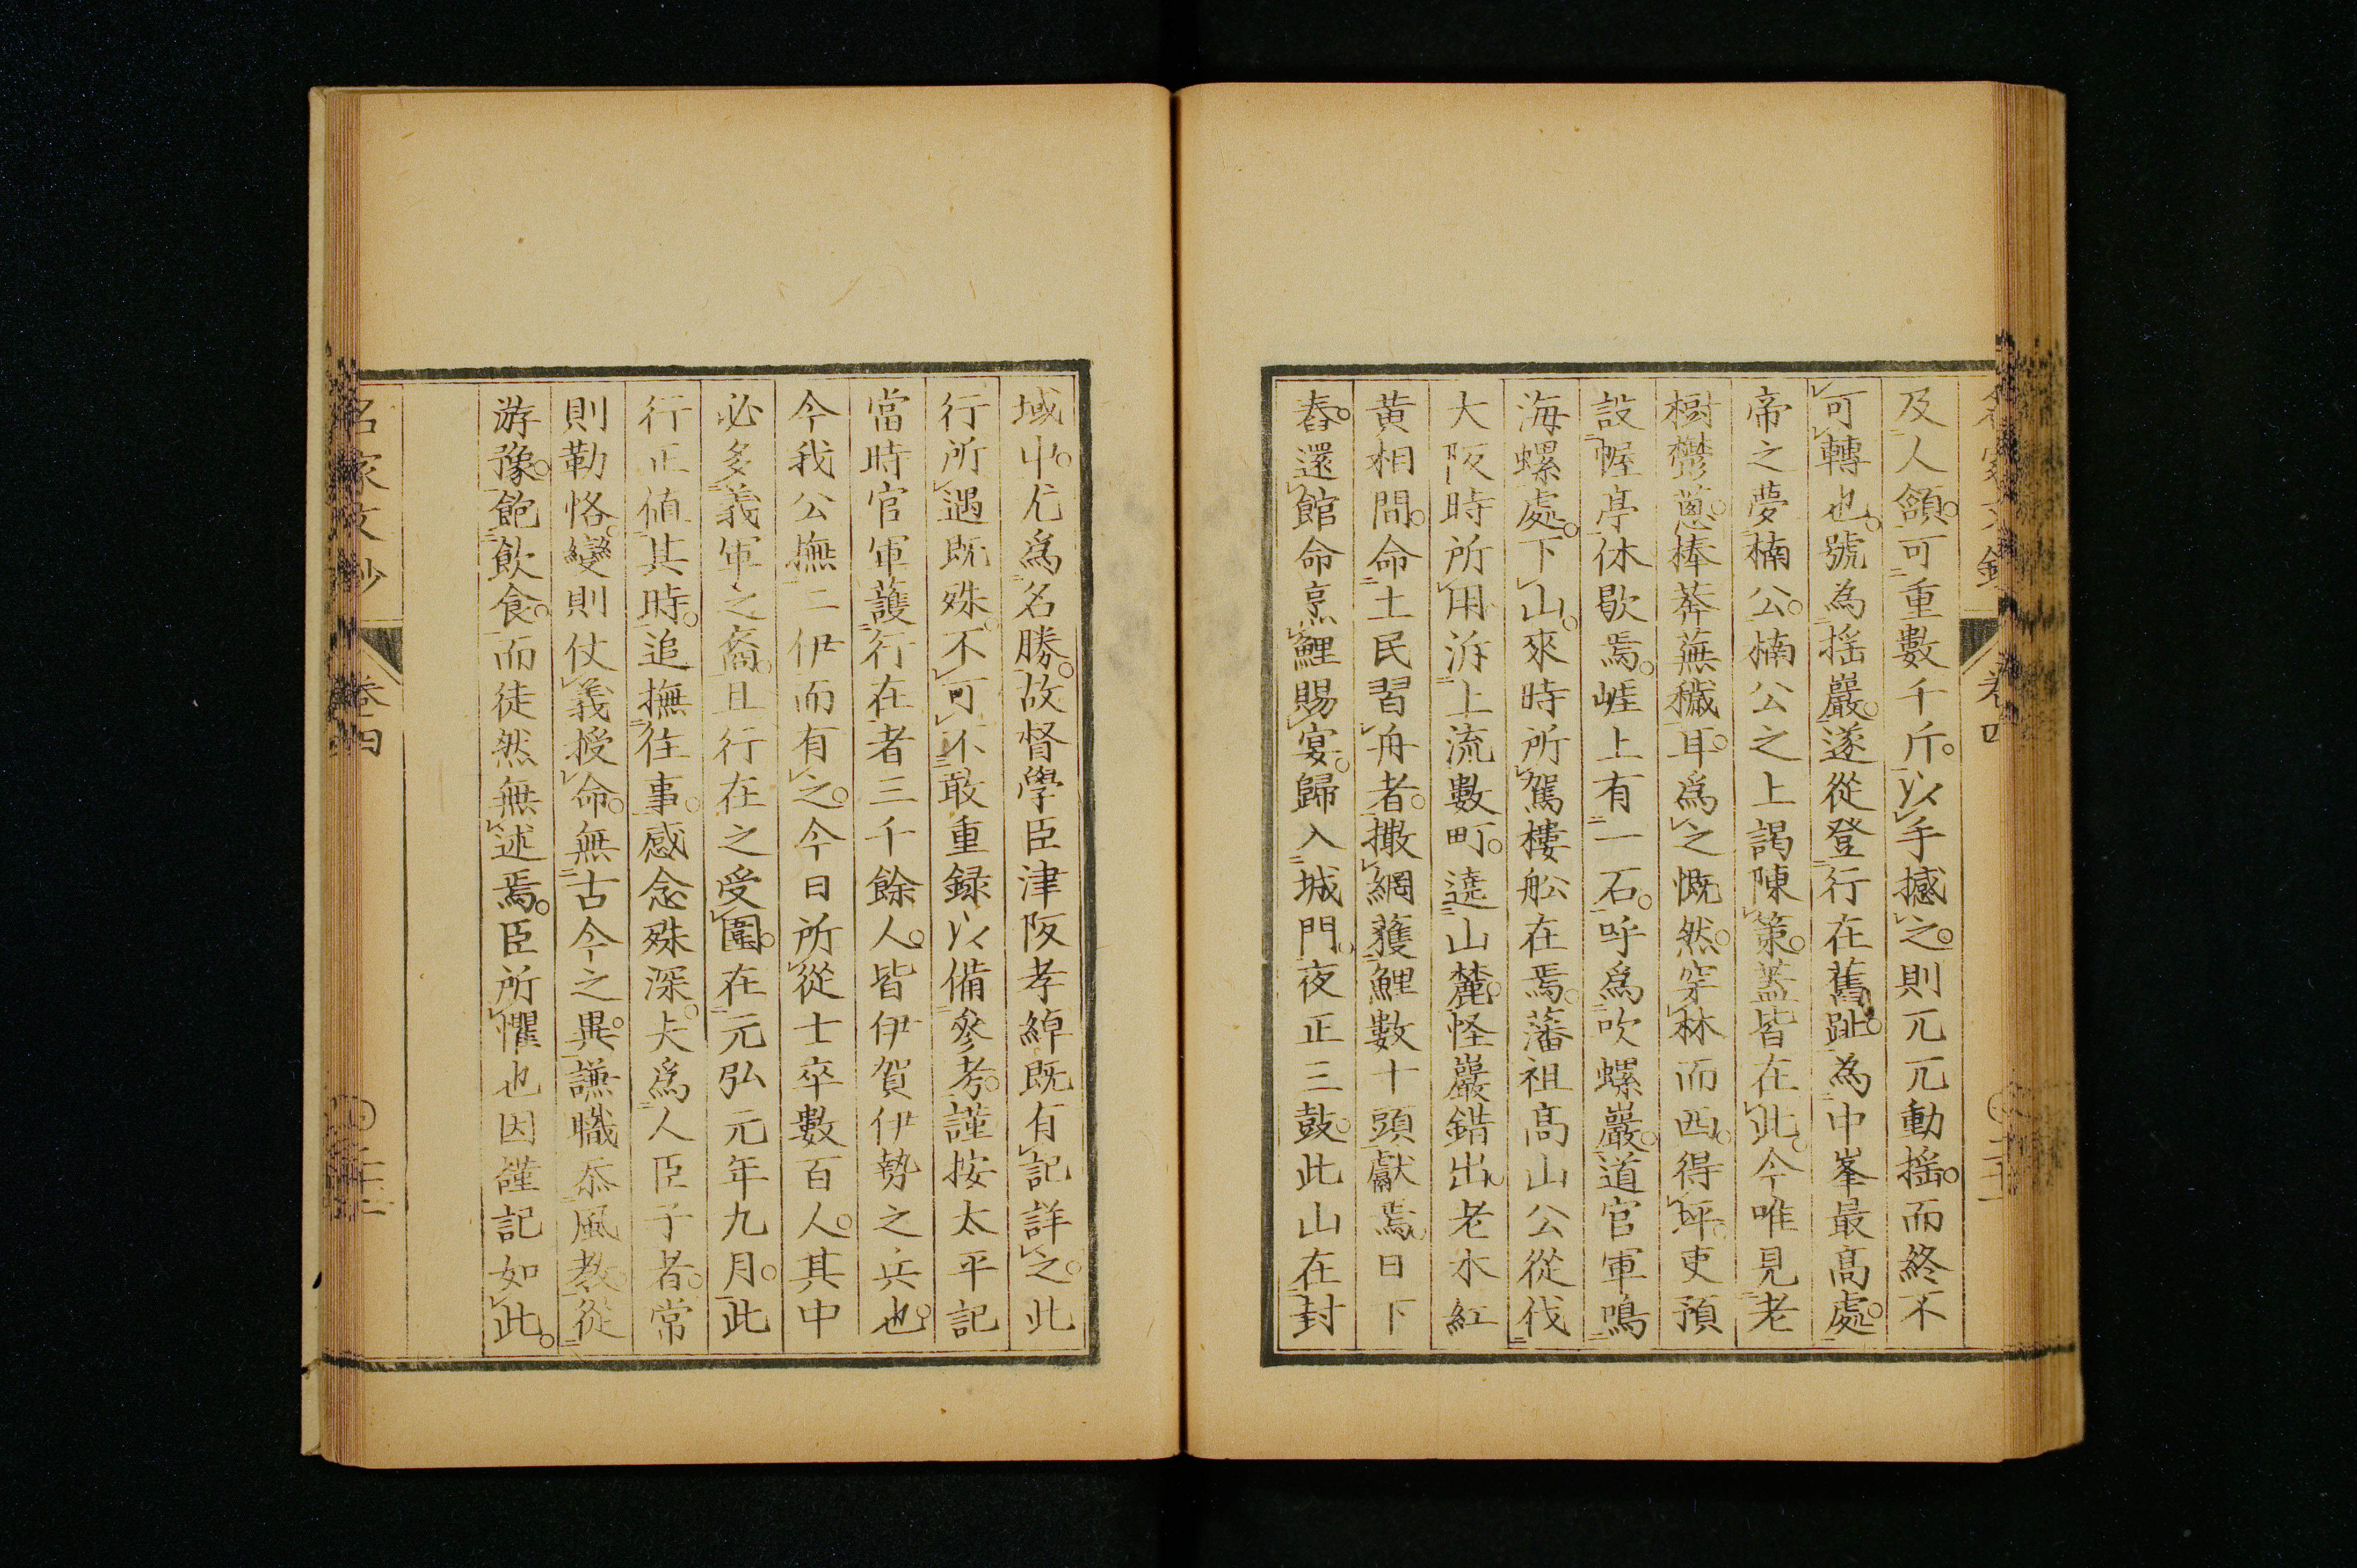 及人頷。可重數千斤。以手撼之。則兀兀動搖。而終不
可轉也。號為搖巖。遂從登行在舊趾。為中峯最高處。
帝之夢楠公。楠公之上謁陳策。蓋皆在此。今唯見老
樹鬱蔥。榛莽蕪穢耳。爲之慨然。穿林而西。得坪。吏預
設幄亭休歇焉。崕上有一石。呼爲吹螺巖。道官軍鳴
海螺處。下山。來時所駕樓舩在焉。藩祖高山公從伐
大阪時所用。泝上流數町。遶山麓。怪巖錯出。老木紅
黄相間。命土民習舟者。撒網獲鯉數十頭獻焉。日下
舂。還館命烹鯉賜宴。歸入城門。夜正三鼓。此山在封
域中。尤爲名勝。故督學臣津阪孝綽既有記詳之。此
行所遇既殊。不可不敢重録以備參考。謹按太平記
當時官軍護行在者三千餘人。皆伊賀伊勢之兵也。
今我公撫二伊而有之。今日所從士卒數百人。其中
必多義軍之裔。且行在之受圍。在元弘元年九月。此
行正値其時。追撫往事。感念殊深。夫爲人臣子者。常
則勤恪。變則仗義授命。無古今之異。謙職忝風教。從
游豫。飽飲食。而徒然無述焉。臣所懼也因謹記如此。
名家文鈔
卷四